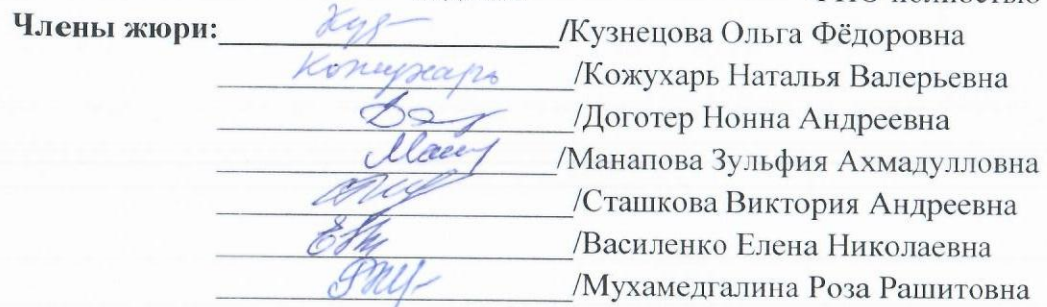 ФИО полностью
Члены жюри: /Кузнецова Ольга Фёдоровна
Кожухарь /Кожухарь Наталья Валерьевна
/Доготер Нонна Андреевна
/Манапова Зульфия Ахмадулловна
/Сташкова Виктория Андреевна
/Василенко Елена Николаевна
/Мухамедгалина Роза Рашитовна